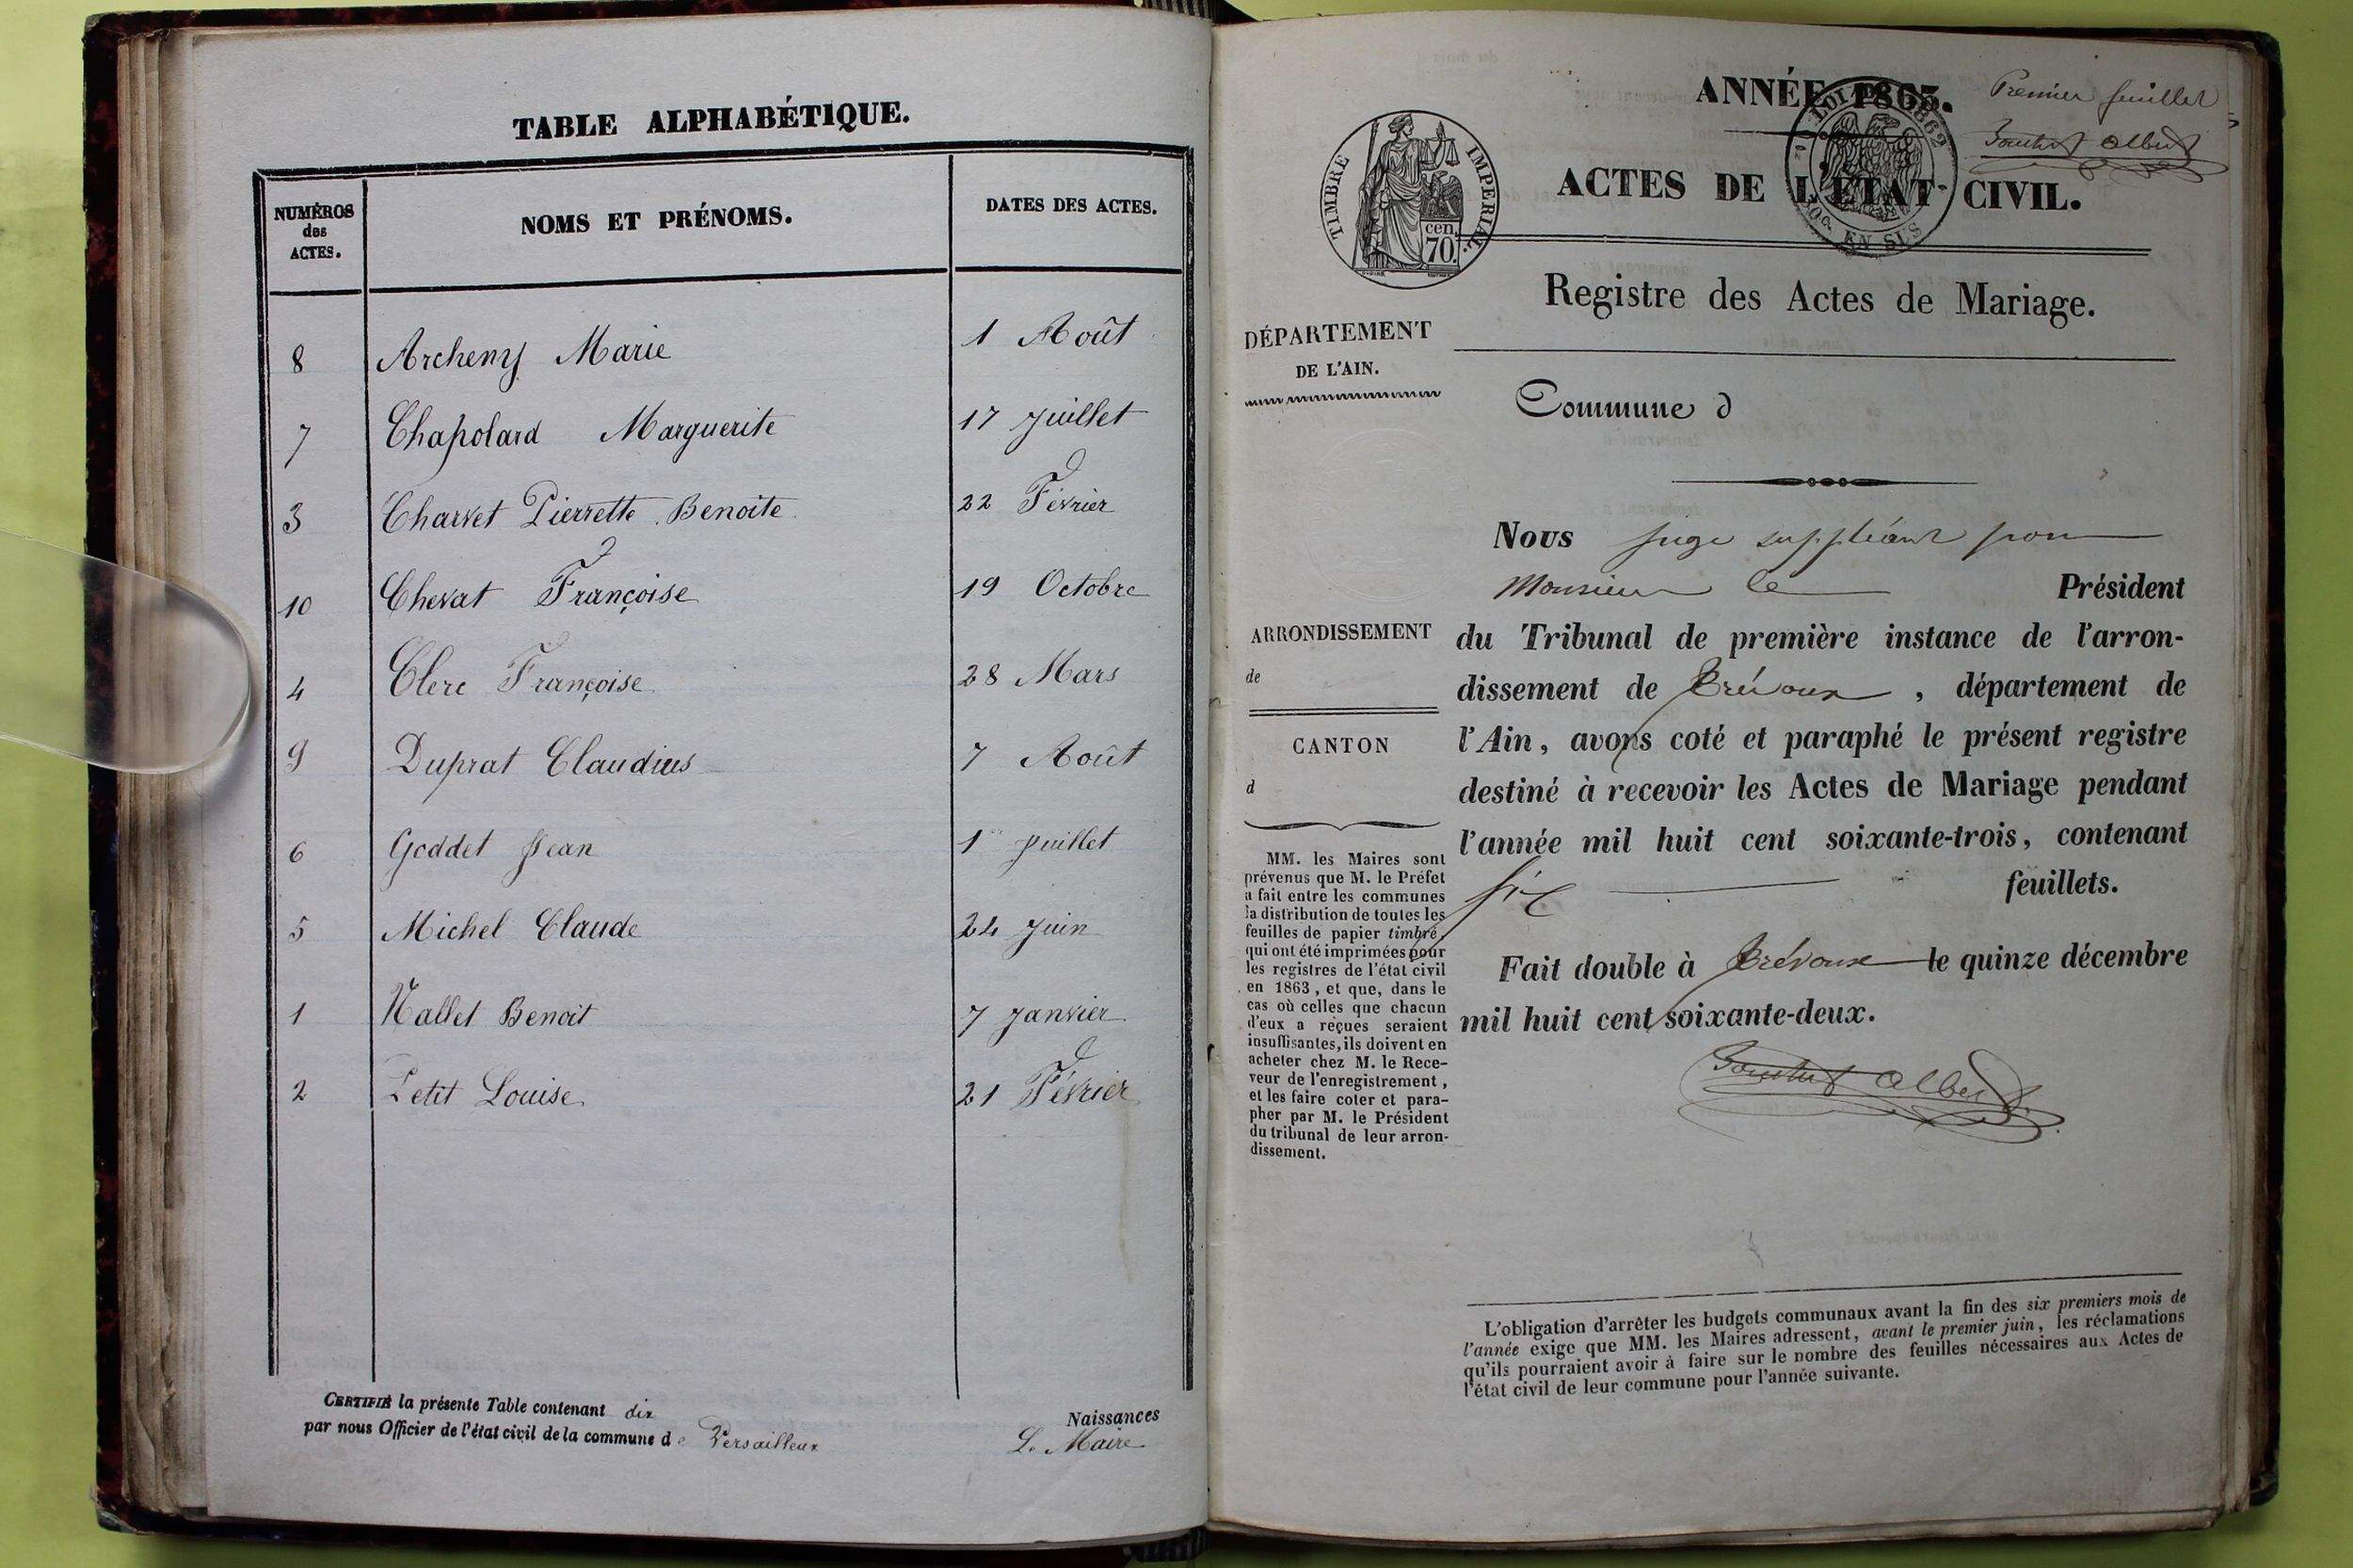 TABLE ALPHABÉTIQUE.
NUMÉROS
des
ACTES.
NOMS ET PRÉNOMS.
DATES DES ACTES.
8 Archeny Marie 1 Août
7 Chapolard Marguerite 17 Juillet
3 Charvet Pierrette Benoite 22 Février
10 Chevat Françoise 19 Octobre
4 Clerc Françoise 28 Mars
9 Duprat Claudius 7 Août
6 Goddet Jean 1 Juillet
5 Michel Claude 24 Juin
1 Nallet Benoit 7 Janvier
2 Petit Louise 21 Février
CERTIFIÉ la présente Table contenant dix Naissances
par nous Officier de l'état civil de la commune de Versailleux Le Maire
ANNÉE 1863.
Premier feuillet
ACTES DE L'ÉTAT CIVIL.
TIMBRE IMPERIAL
cen.
70.
LOI DE 1862
EN SUS
Registre des Actes de Mariage.
DÉPARTEMENT
DE L'AIN.
Commune d
Nous juge suppléant pour
Monsieur le Président
ARRONDISSEMENT
de
CANTON
d
du Tribunal de première instance de l'arron-
dissement de Trévoux, département de
l'Ain, avons coté et paraphé le présent registre
destiné à recevoir les Actes de Mariage pendant
l'année mil huit cent soixante-trois, contenant
six feuillets.
Fait double à Trévoux le quinze décembre
mil huit cent soixante-deux.
Albert
MM. les Maires sont
prévenus que M. le Préfet
a fait entre les communes
la distribution de toutes les
feuilles de papier timbré,
qui ont été imprimées pour
les registres de l'état civil
en 1863, et que, dans le
cas où celles que chacun
d'eux a reçues seraient
insuffisantes, ils doivent en
acheter chez M. le Rece-
veur de l'enregistrement,
et les faire coter et para-
pher par M. le Président
du tribunal de leur arron-
dissement.
L'obligation d'arrêter les budgets communaux avant la fin des six premiers mois de
l'année exige que MM. les Maires adressent, avant le premier juin, les réclamations
qu'ils pourraient avoir à faire sur le nombre des feuilles nécessaires aux Actes de
l'état civil de leur commune pour l'année suivante.